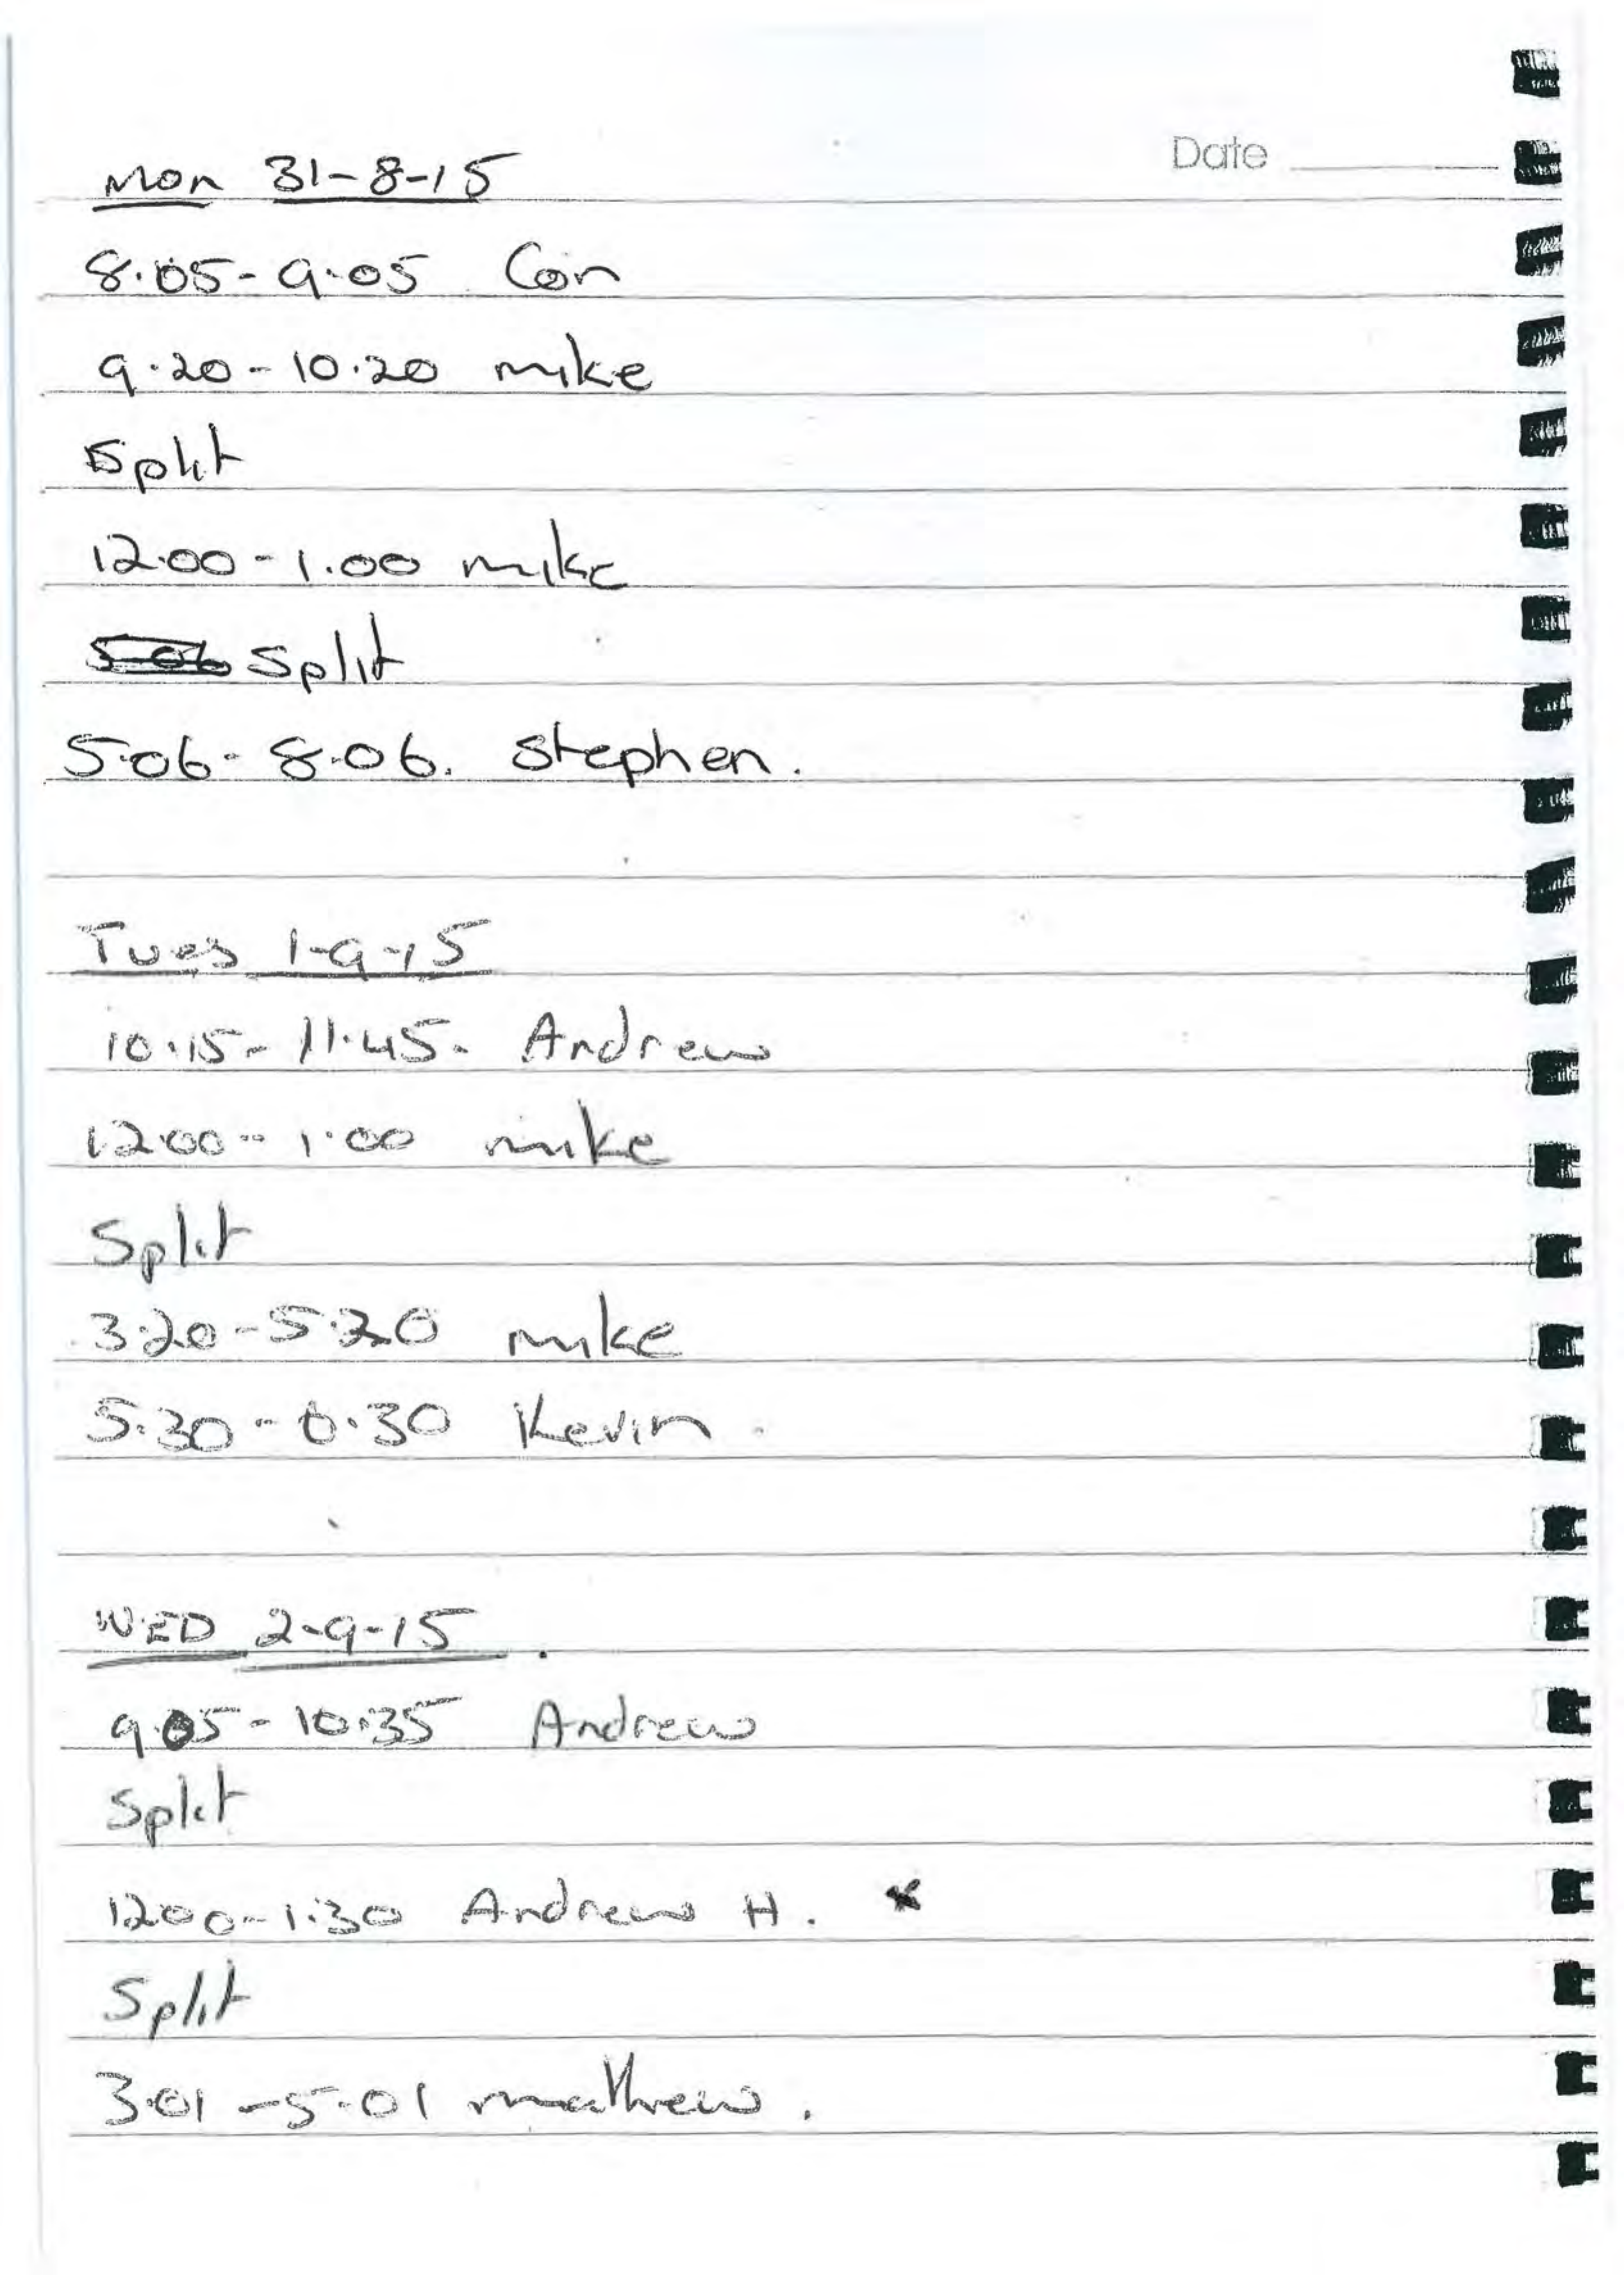 Date
Mon 31-8-15
8.05-9.05 Con
9.20-10.20 mike
Split
12.00-1.00 mike
5-06 Split
5.06-8.06. Stephen.
Tues 1-9-15
10.15-11.45- Andrew
12.00-1.00 mike
Split
3.20-5.20 mike
5.30-6.30 Kevin.
WED 2-9-15.
9.05-10.35 Andrew
Split
12.00-1:30 Andrew H. x
Split
3.01-5.01 mathew.